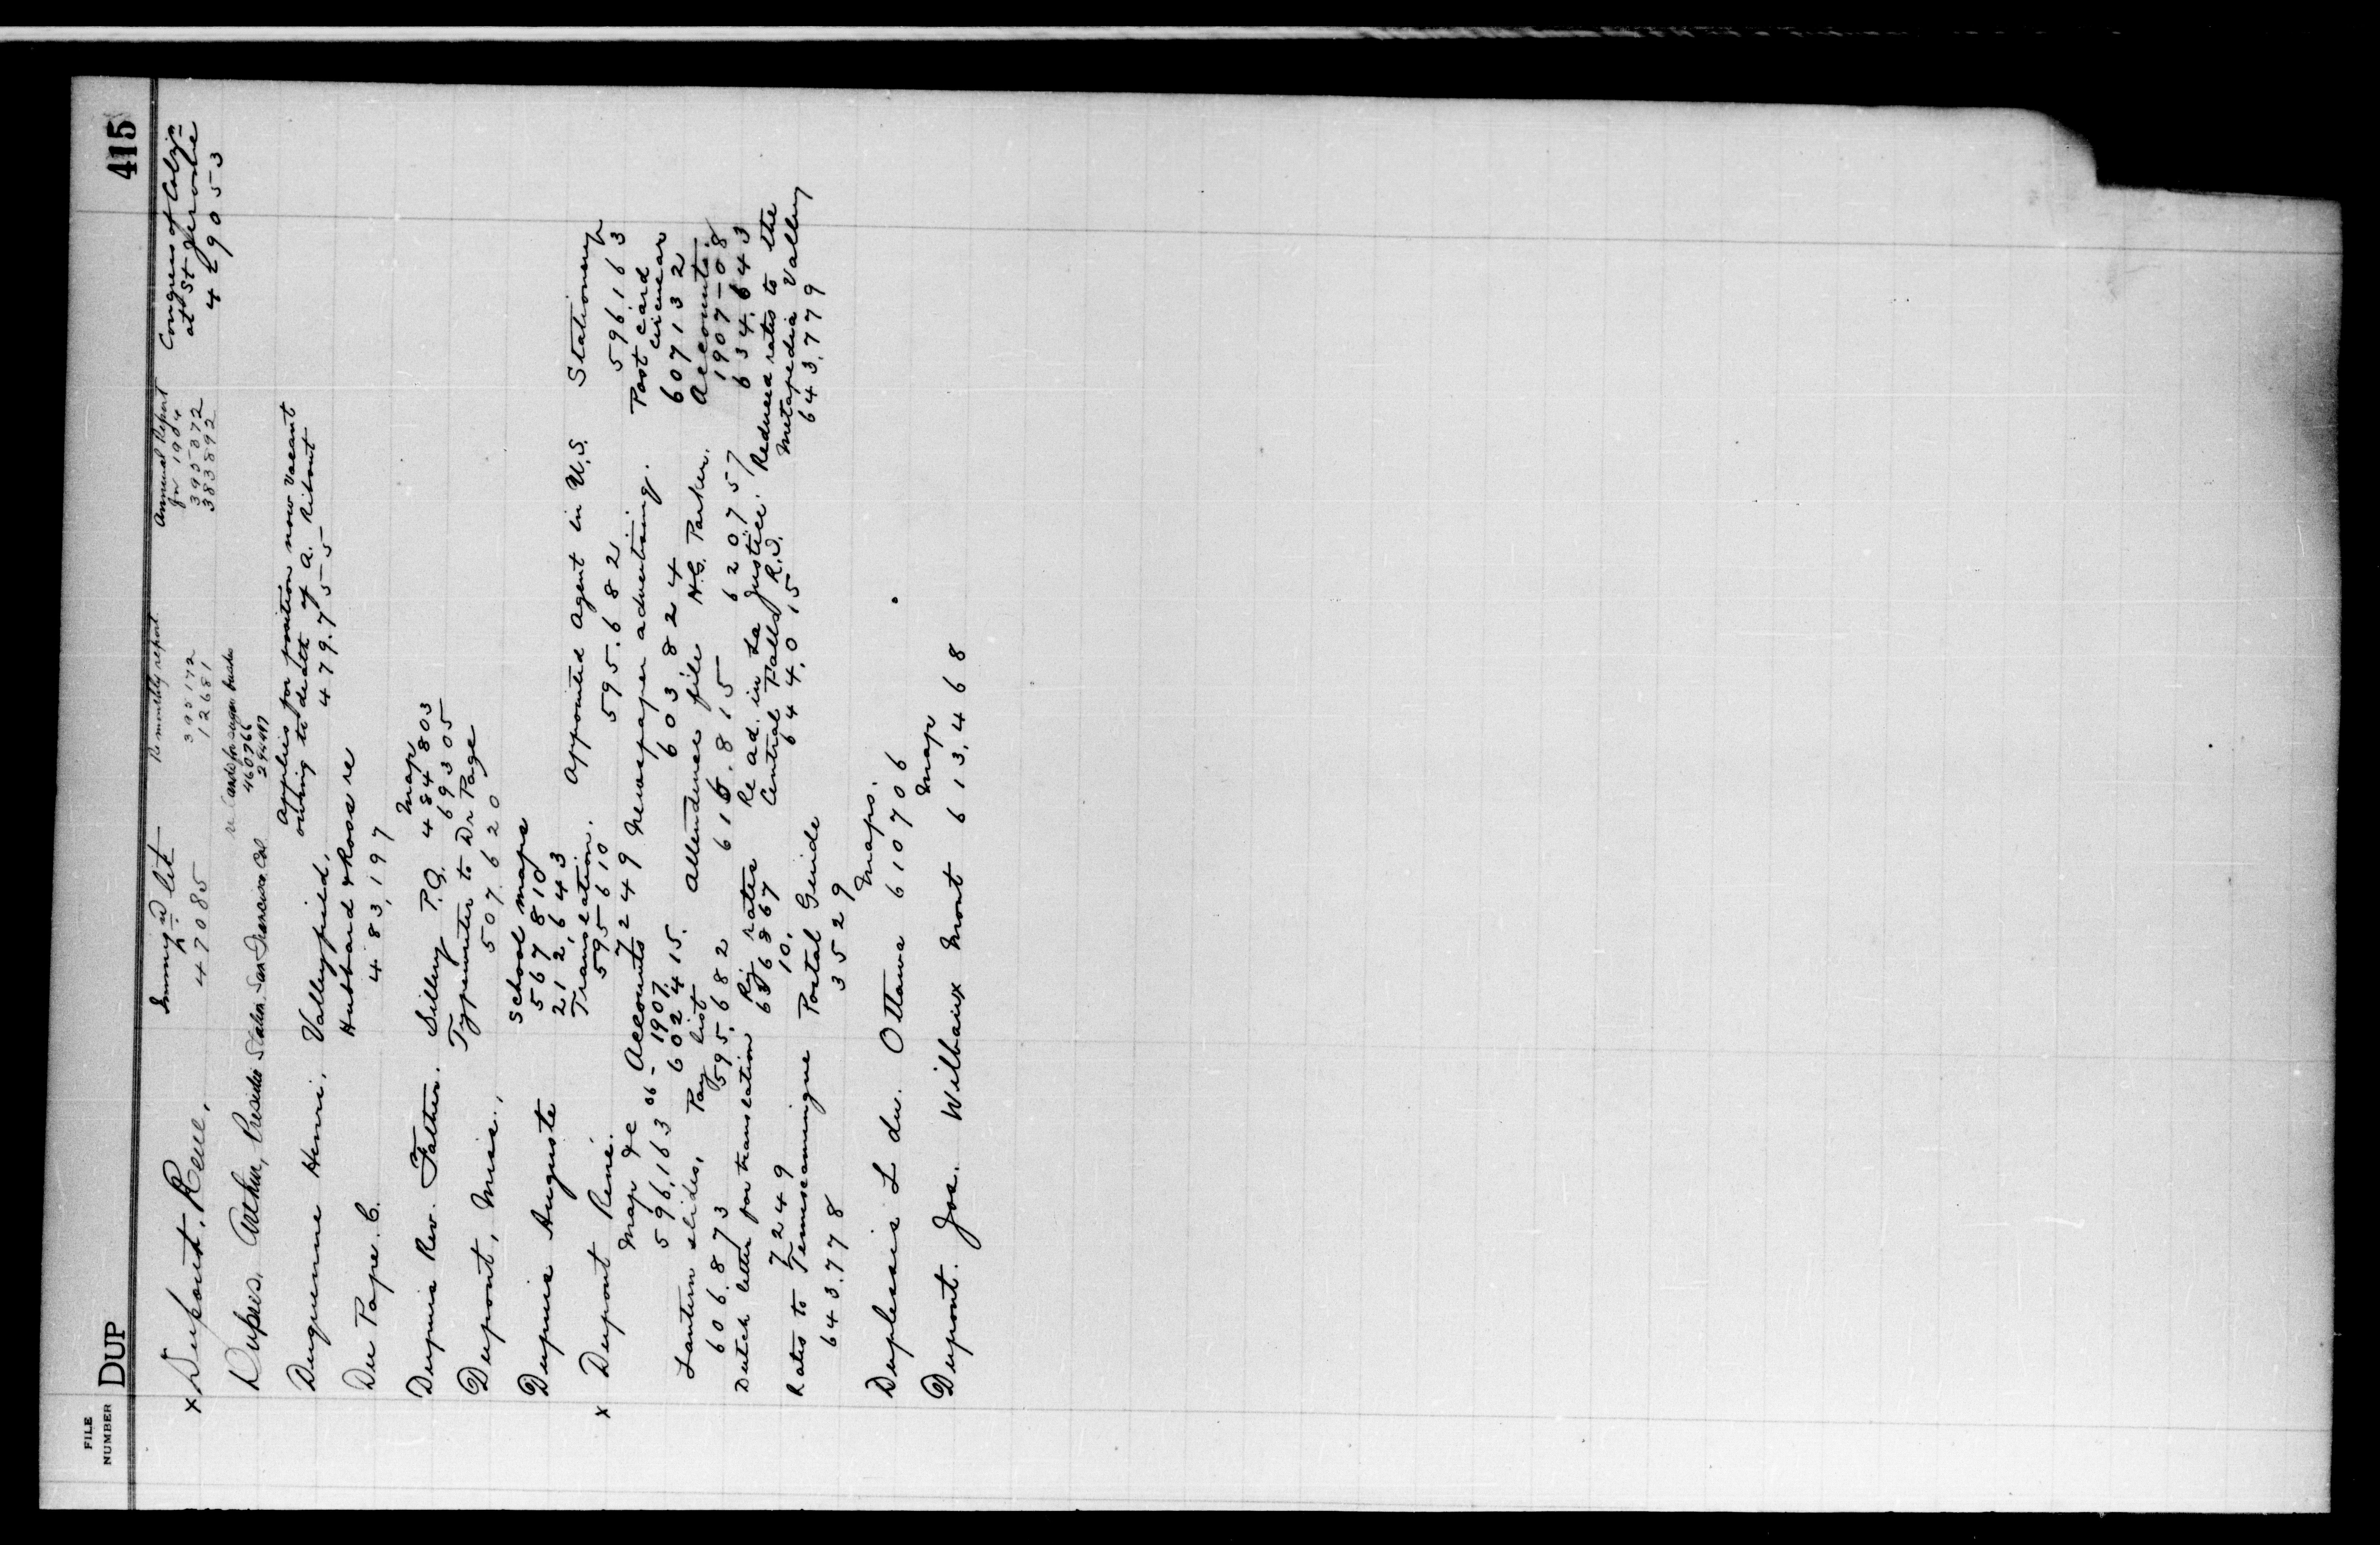 FILE
NUMBER
DUP
415
x Dupont, Rene,
Immig'n lit
47085
Re monthly report
395172
12681
Annual Report
for 1904
395872
383892
Congress of Coloz'n
at St Jerome
429053
Dupuis, Arthur, Presidio Station San Francisco, Cal
460766
294497
Duquenne Henri, Valleyfield,
Applies for position now vacant
owing to death of A.
479.755
Du Pape C.
Hubbard & Ross re
483,197
Dupuis Rev. Father. Sillery P.Q.
Map
484803
Typewriter to Dr Page
69305
Dupont, Miss.,
507.620
Dupuis Auguste
School maps
567810
212,643
Translation.
595610
x Dupont Rene.
Appointed Agent in U.S.
595.682
Stationery
596163
Map &c
596,163
Accounts
06-1907.
602415.
7249
Newspaper advertising.
603.824
Post card
circular
607132
Lantern slides,
606.873
Pay list
595.682
Attendance file
616.815
H.G. Parker.
620757
Accounts.
1907-08
634.643
Dutch letter for translation
7249
Ry rates
636867
10.
Re ad. in La Justice.
Central Falls R.I.
644.015
Reduced rates to the
Metapedia Valley
643.779
Rates to Temiscamingue
643.778
Postal Guide
3529
Duplessis L du. Ottawa
Maps.
610706
Dupont. Jos. Wilbaux Mont
Map
613.468